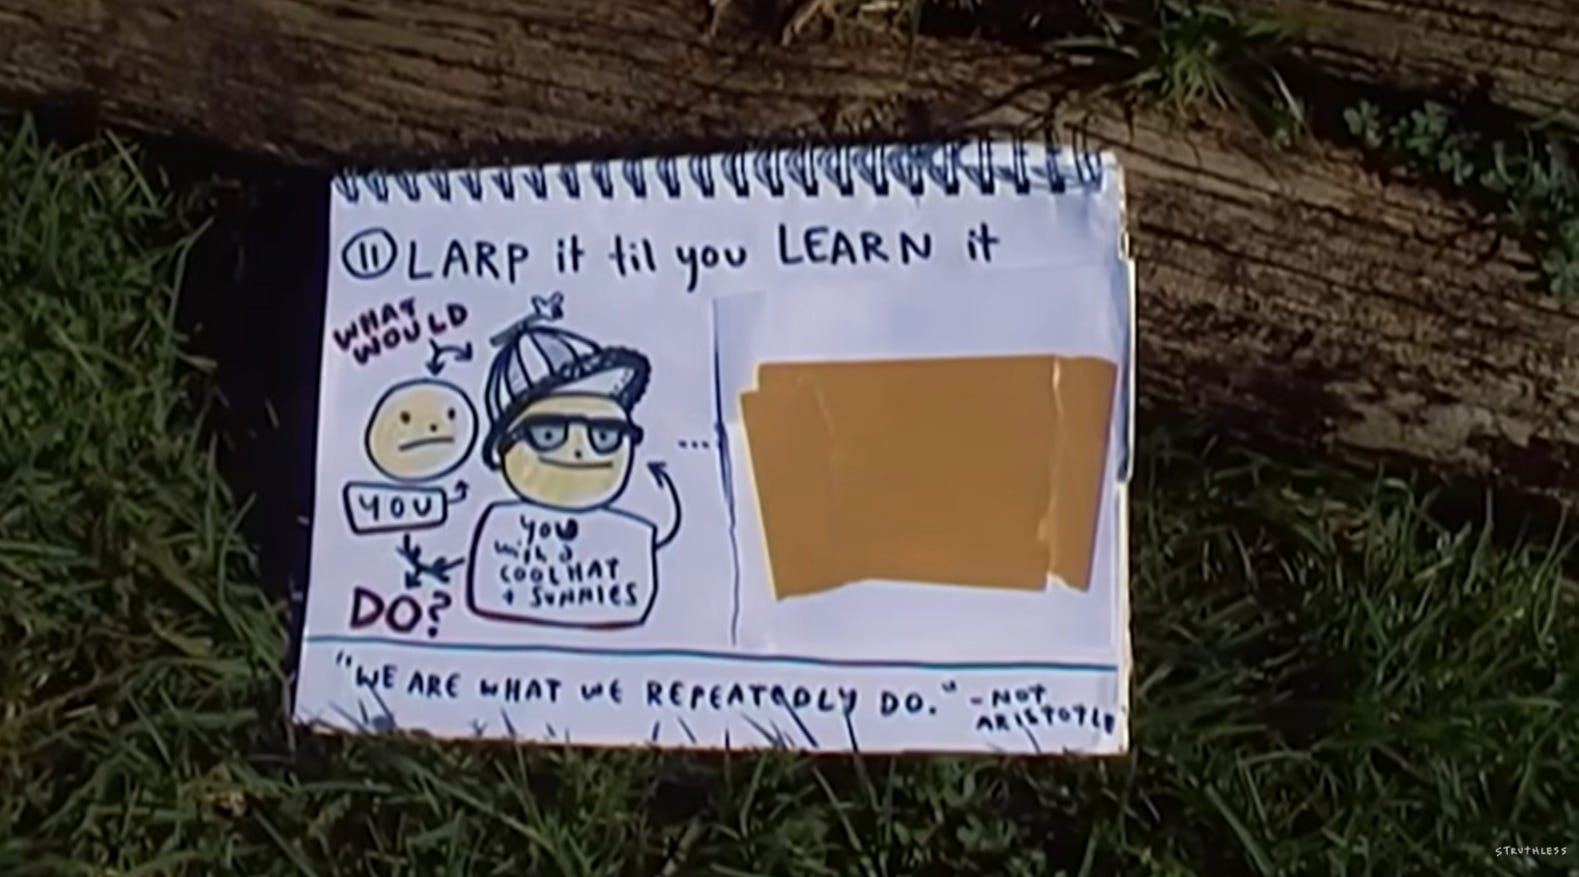 11 LARP it til you LEARN it
WHAT
WOULD
YOU
YOU
with a
COOL HAT
+ SUNNIES
DO?
"WE ARE WHAT WE REPEATEDLY DO." - NOT
ARISTOTLE
STRUTHLESS